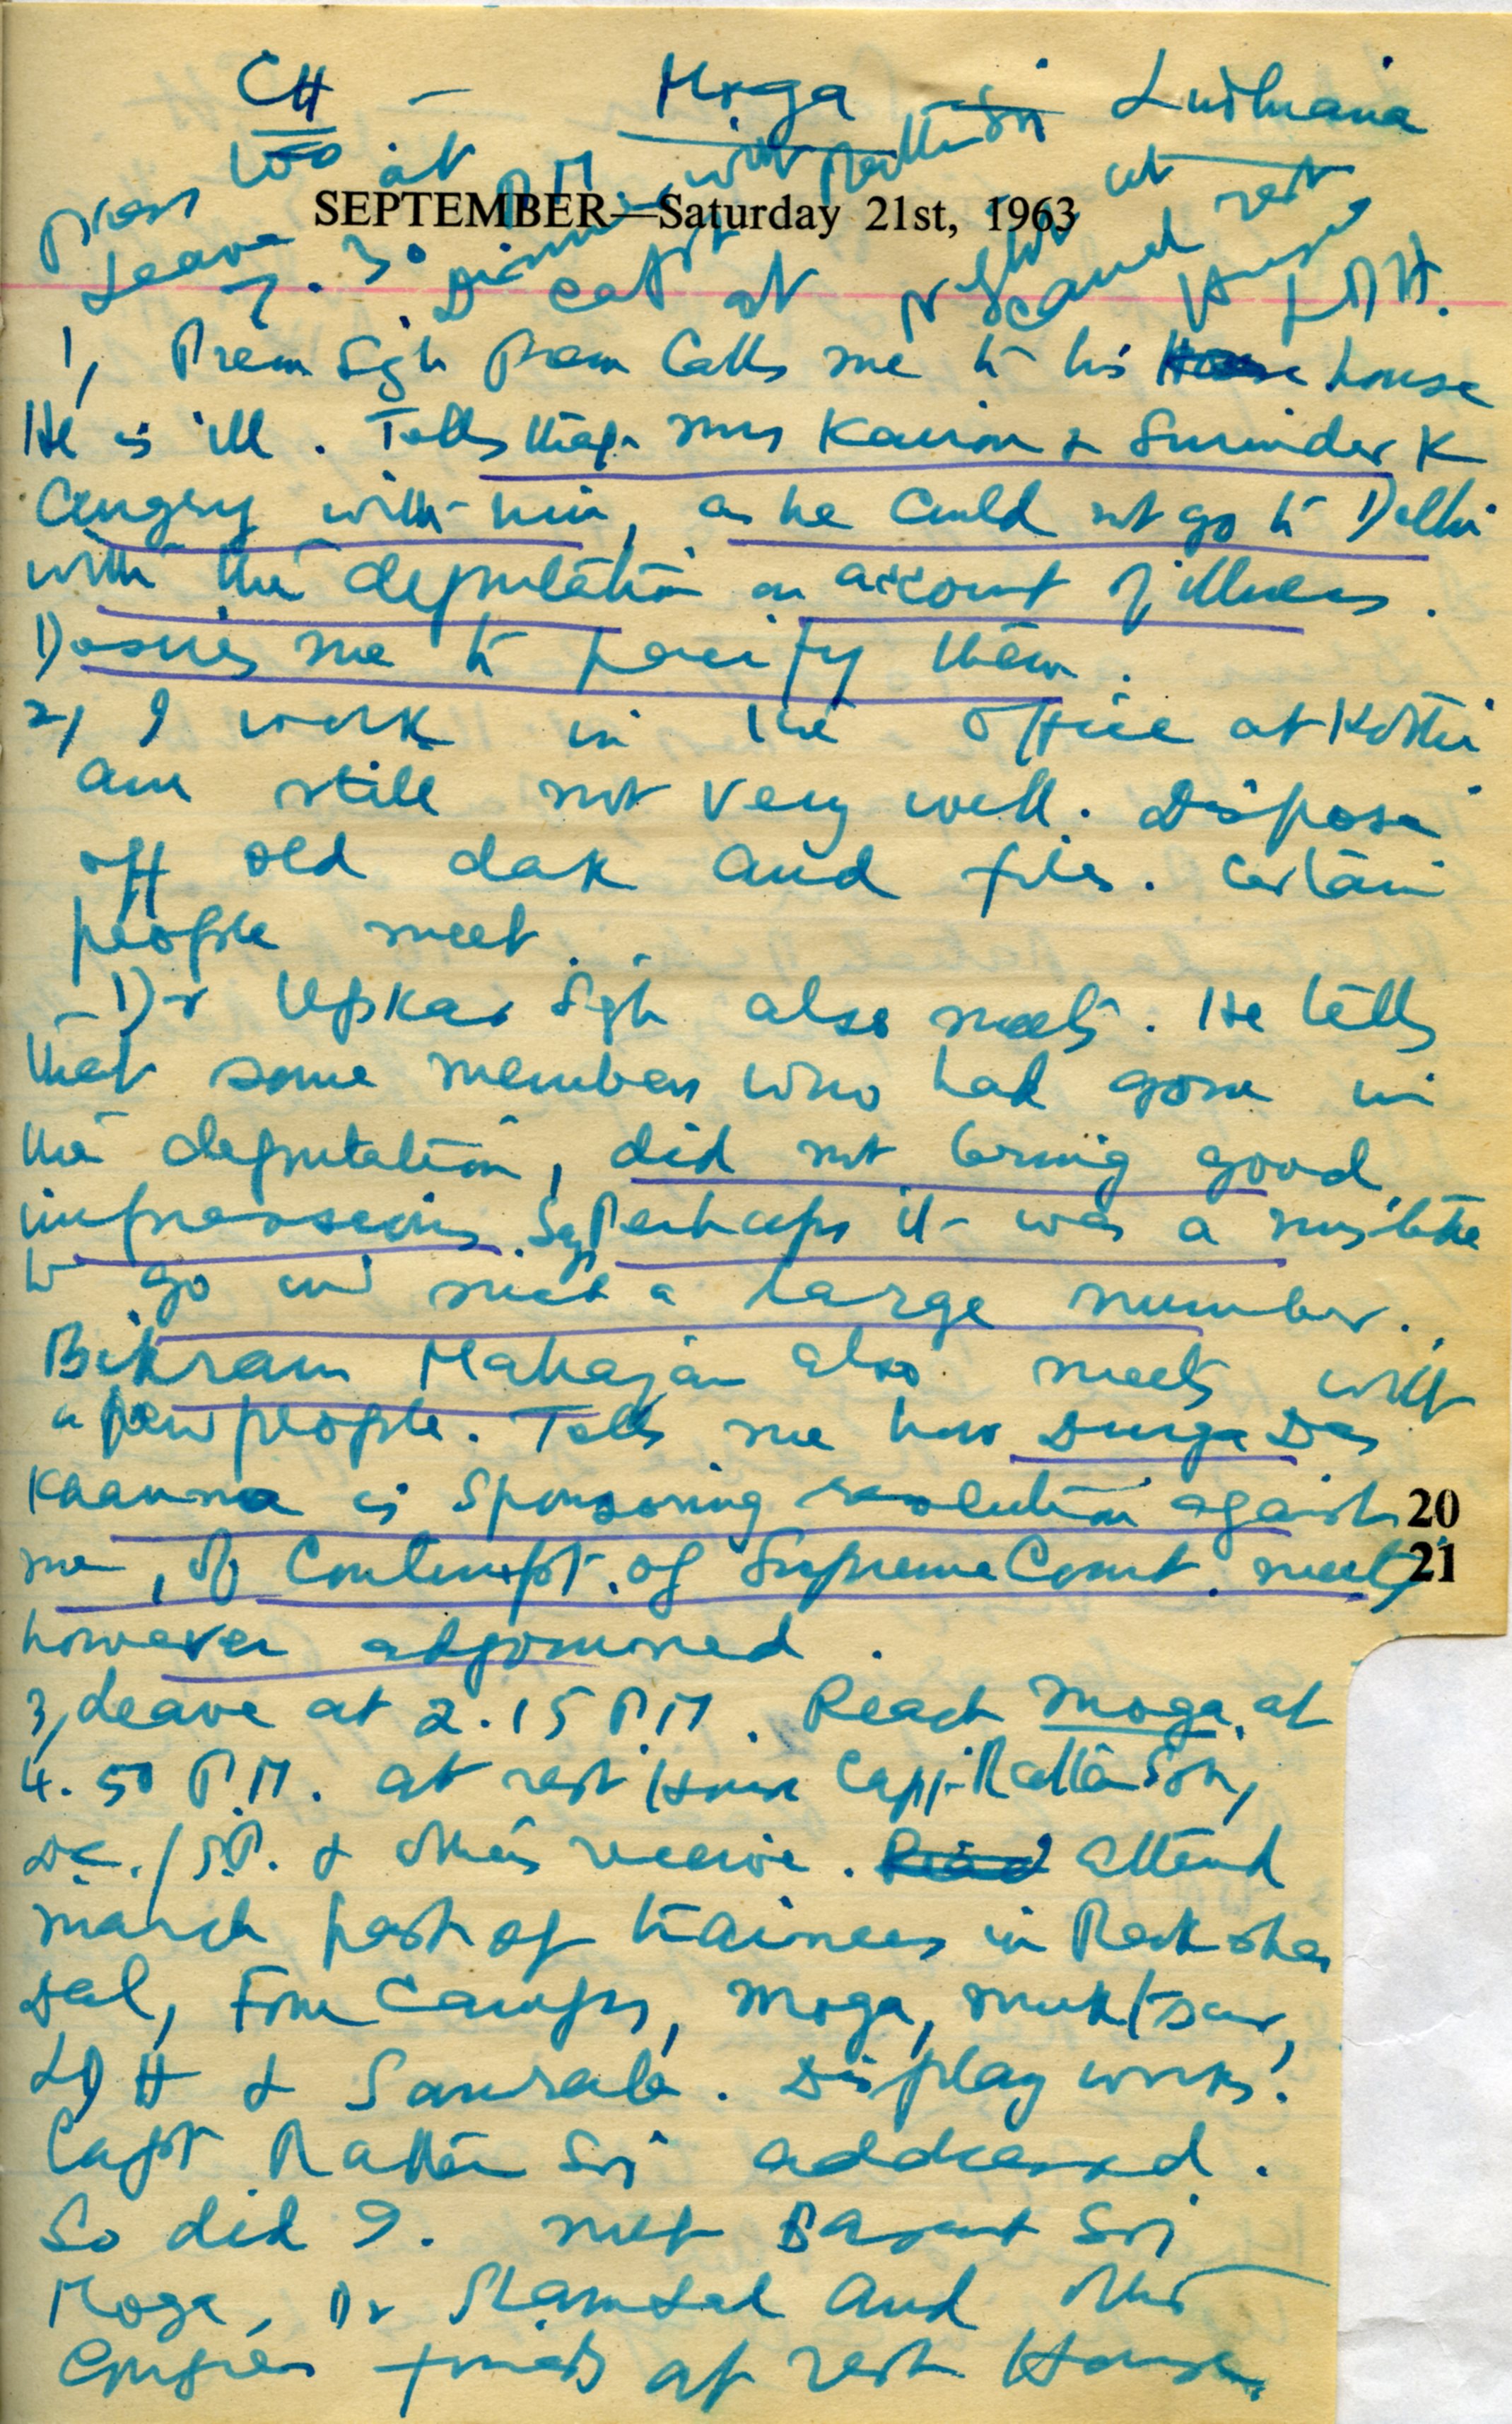 CH - Moga Ludhiana
SEPTEMBER—Saturday 21st, 1963
Press too at
Leave 7.30 P.M. with Rattan
Dinner eat at night at
Canal rest House LDH.
1, Prem Sgh Prem Calls me to his house
He is ill. Tells that mrs Kairon & Surinder K
angry with him, as he could not go to Delhi
with the deputation on account of illness.
Desires me to pacify them.
2, I work in the office at Kothi
am still not very well. Dispose
off old dak and files. Certain
people meet.
Dr Upkar Sgh also meets. He tells
that some members who had gone in
the deputation, did not bring good
impressions. Sys Perhaps it was a mistake
to go in such a large number.
Bikram Mahajan also meets with
a few people. Tells me how Durga Das
Khanna is sponsoring resolution against
me, of Contempt of Supreme Court. meetg
however adjourned.
20
21
3, Leave at 2.15 P.M. Reach Moga at
4.50 P.M. at rest House Capt. Rattan Sgh,
DC./S.P. & others receive. attend
march past of trainees in Raksha
Dal, Four Camps, Moga, Muktsar,
LDH & Sarabha. Display works.
Capt Rattan Sgh addressed.
So did I. met Basant Sgh
Moga, Dr Sham Lal and other
Congress friends at rest House.